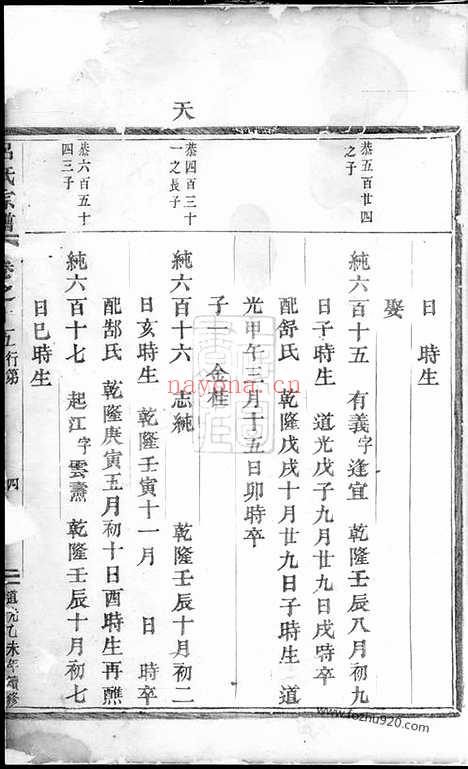 天
恭五百廿四
之子
恭四百三十
一之長子
恭六百五十
四三子
日 時生
娶
純六百十五 有義字逢宜 乾隆壬辰八月初九
日子時生 道光戊子九月廿九日戌時卒
配舒氏 乾隆戊戌十月廿九日子時生 道
光甲午三月十五日卯時卒
子一 金桂
純六百十六 志純 乾隆壬辰十月初二
日亥時生 乾隆壬寅十一月 日 時卒
配郜氏 乾隆庚寅五月初十日酉時生再醮
純六百十七 起江字雲燾 乾隆壬辰十月初七
日巳時生
呂氏宗譜 卷之十五行第 四 道光乙未年續修
nayona.cn
www.fozhu920.com